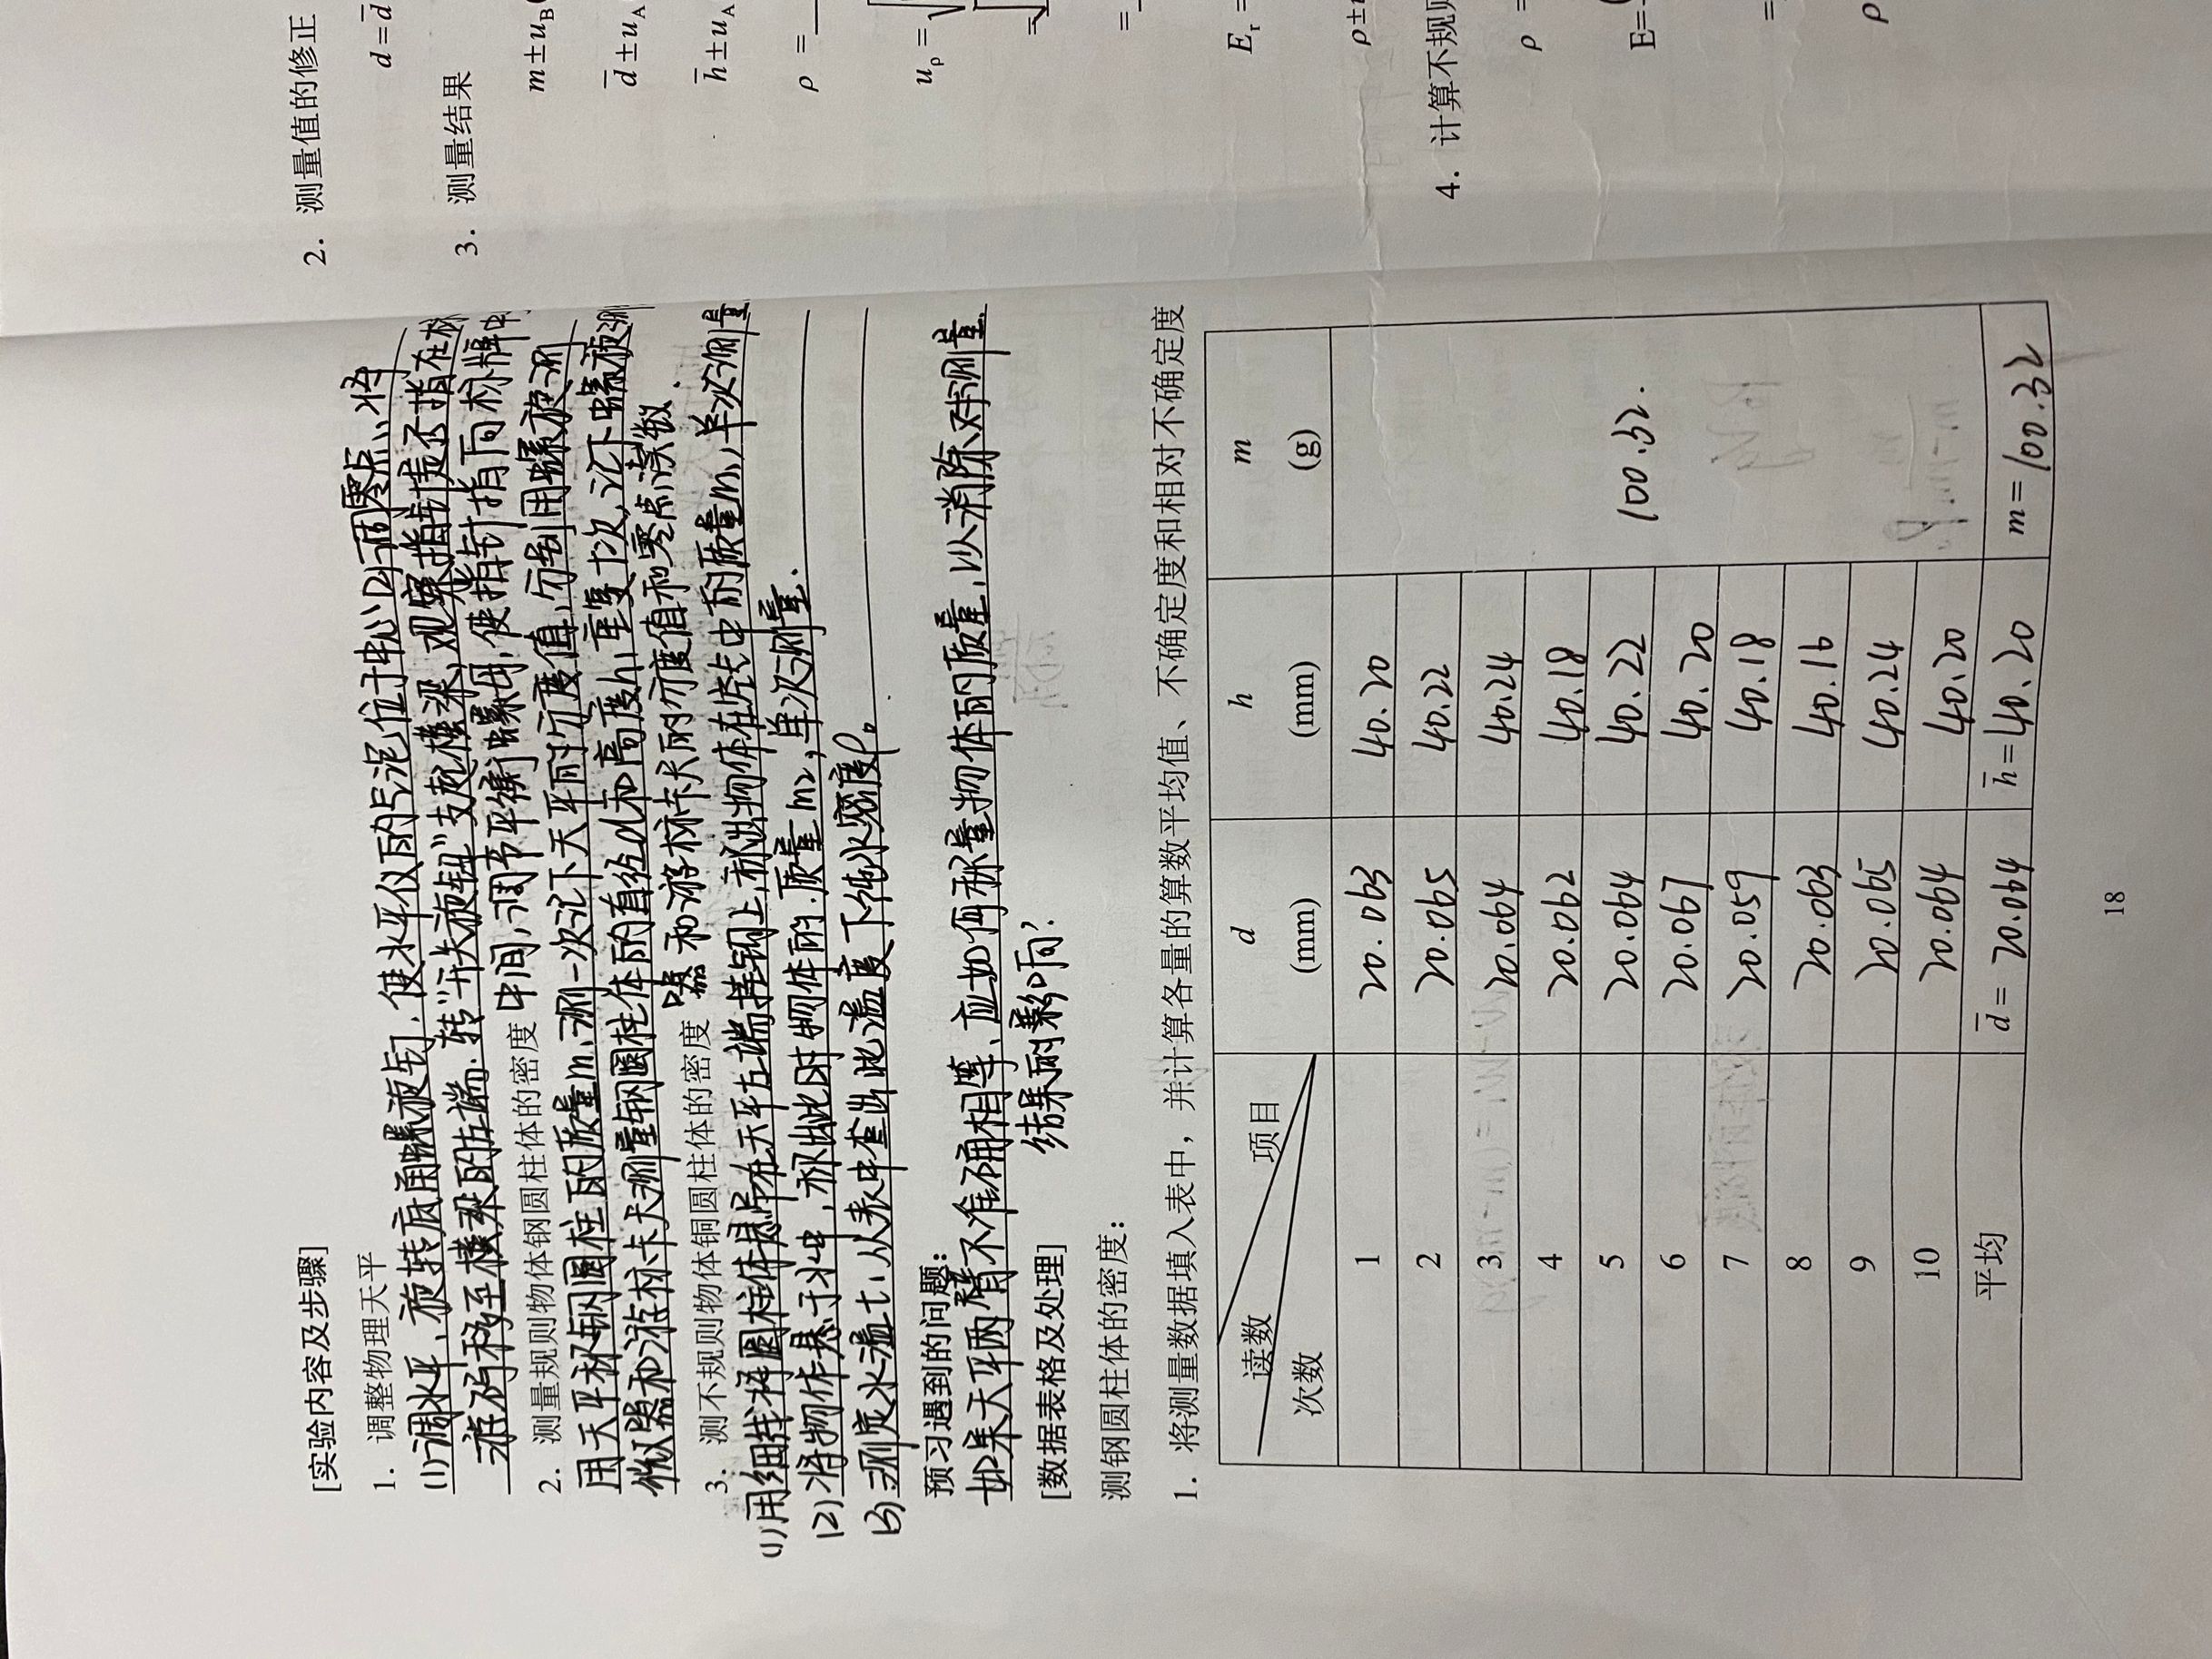 [实验内容及步骤]
1. 调整物理天平
(1)调水平，旋转底角螺旋钉，使水平仪的气泡位于中心(2)调零点，将
游码移至横梁的左端．转“开关旋钮”支起横梁，观察指针是否指在标
中间，调节平衡螺母，使指针指向标牌中
2. 测量规则物体钢圆柱体的密度
用天平称钢圆柱的质量m，测一次记下天平的分度值，分别用螺旋测
微器和游标卡尺测量钢圆柱体的直径d和高度h，重复十次，记下螺旋测
器和游标卡尺的分度值和零点读数．
3. 测不规则物体铜圆柱体的密度
(1)用细线将圆柱体悬吊在天平左端挂钩上，称出物体在空气中的质量m₁，单次测量
(2)将物体悬于水中，称出此时物体的质量m2，单次测量．
(3)测定水温t，从表中查出此温度下纯水密度ρ。
预习遇到的问题：
如果天平两臂不准确相等，应如何称量物体的质量，以消除对测量
结果的影响？
[数据表格及处理]
测钢圆柱体的密度：
1. 将测量数据填入表中，并计算各量的算数平均值、不确定度和相对不确定度
读数 项目 次数 d (mm) h (mm) m (g)
1 20.063 40.20
2 20.065 40.22
3 20.064 40.24
4 20.062 40.18
5 20.064 40.22 100.32.
6 20.067 40.20
7 20.059 40.18
8 20.063 40.16
9 20.065 40.24
10 20.064 40.20
平均 d̅ = 20.064 h̅ = 40.20 m = 100.32
18
2. 测量值的修正
d = d̅
3. 测量结果
m ± u_B(
d̅ ± u_A
h̅ ± u_A
ρ =
u_ρ = √
= √
=
E_r =
ρ ±
4. 计算不规则
ρ =
E=
=
ρ